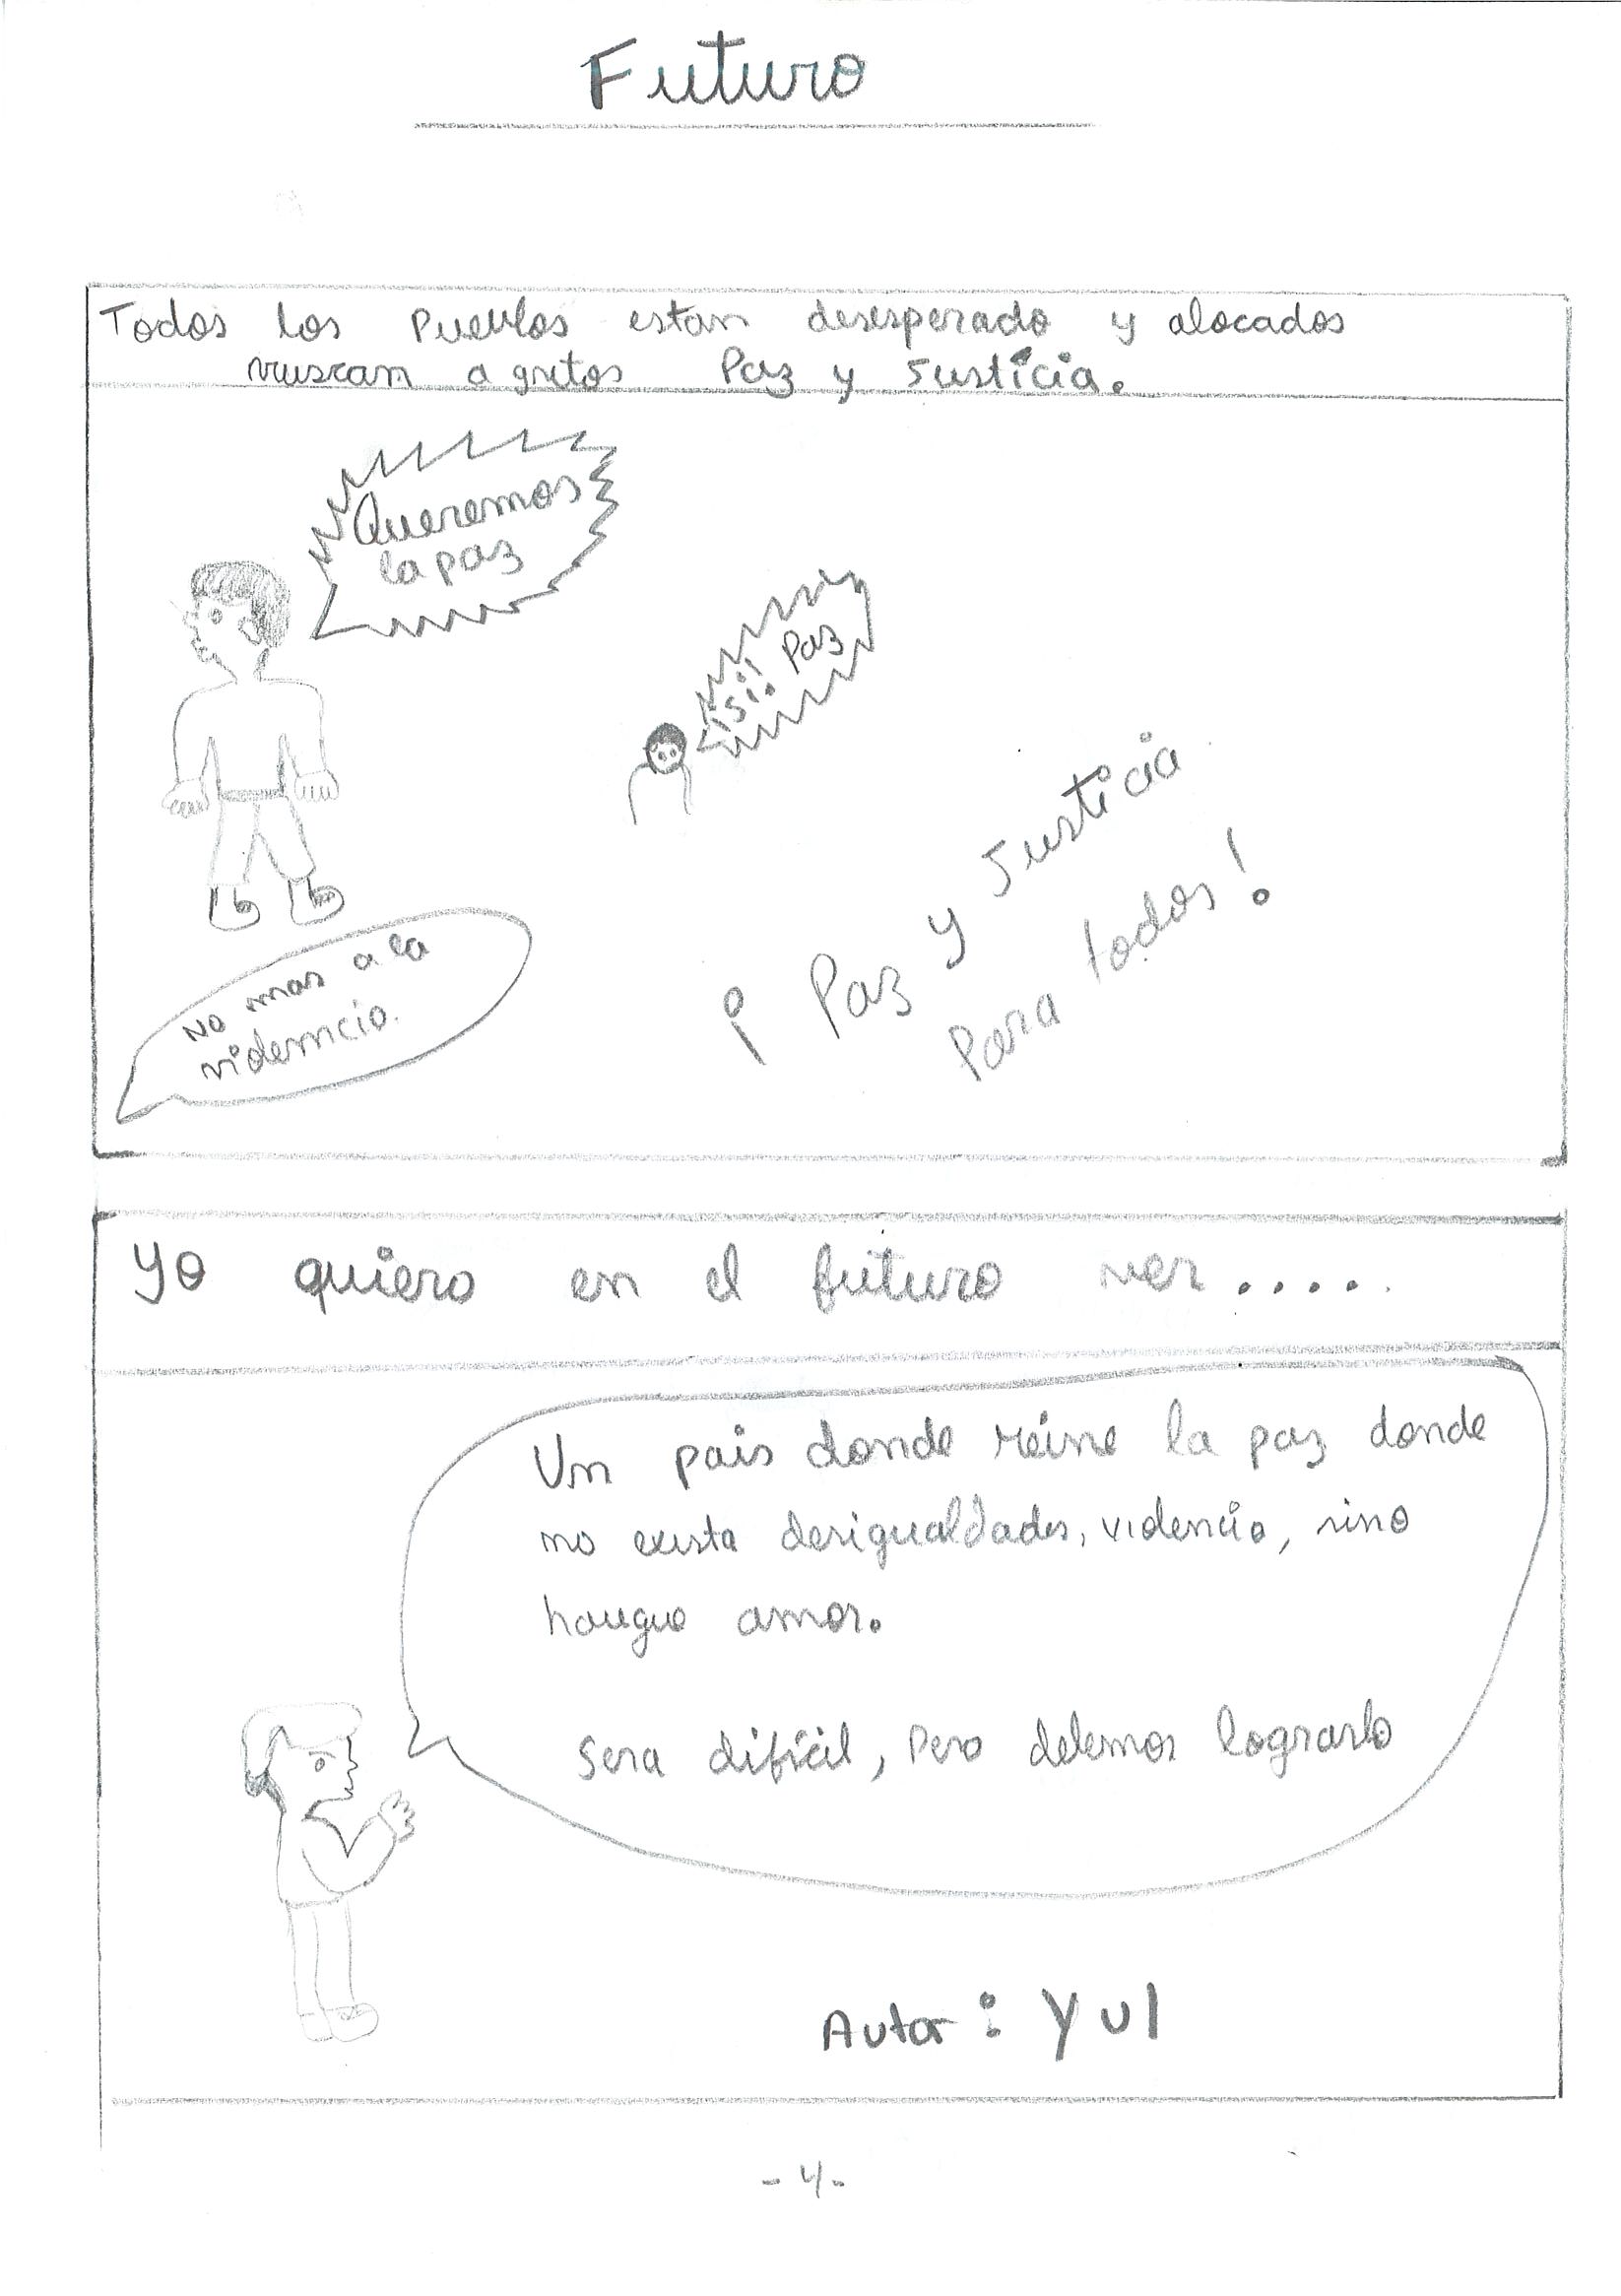 Futuro
Todos los Puevlos estan desesperado y alocados
vuscan a gritos Paz y Justicia.
Queremos
la paz
¡Si! Paz
¡Paz y Justicia
Para todos!
No mas a la
violencia.
Yo quiero en el futuro ver.....
Un pais donde reine la paz donde
no exista desigualdades, violencia, sino
amor.
Sera dificil, Pero debemos lograrlo
Autor: Yul
-4-